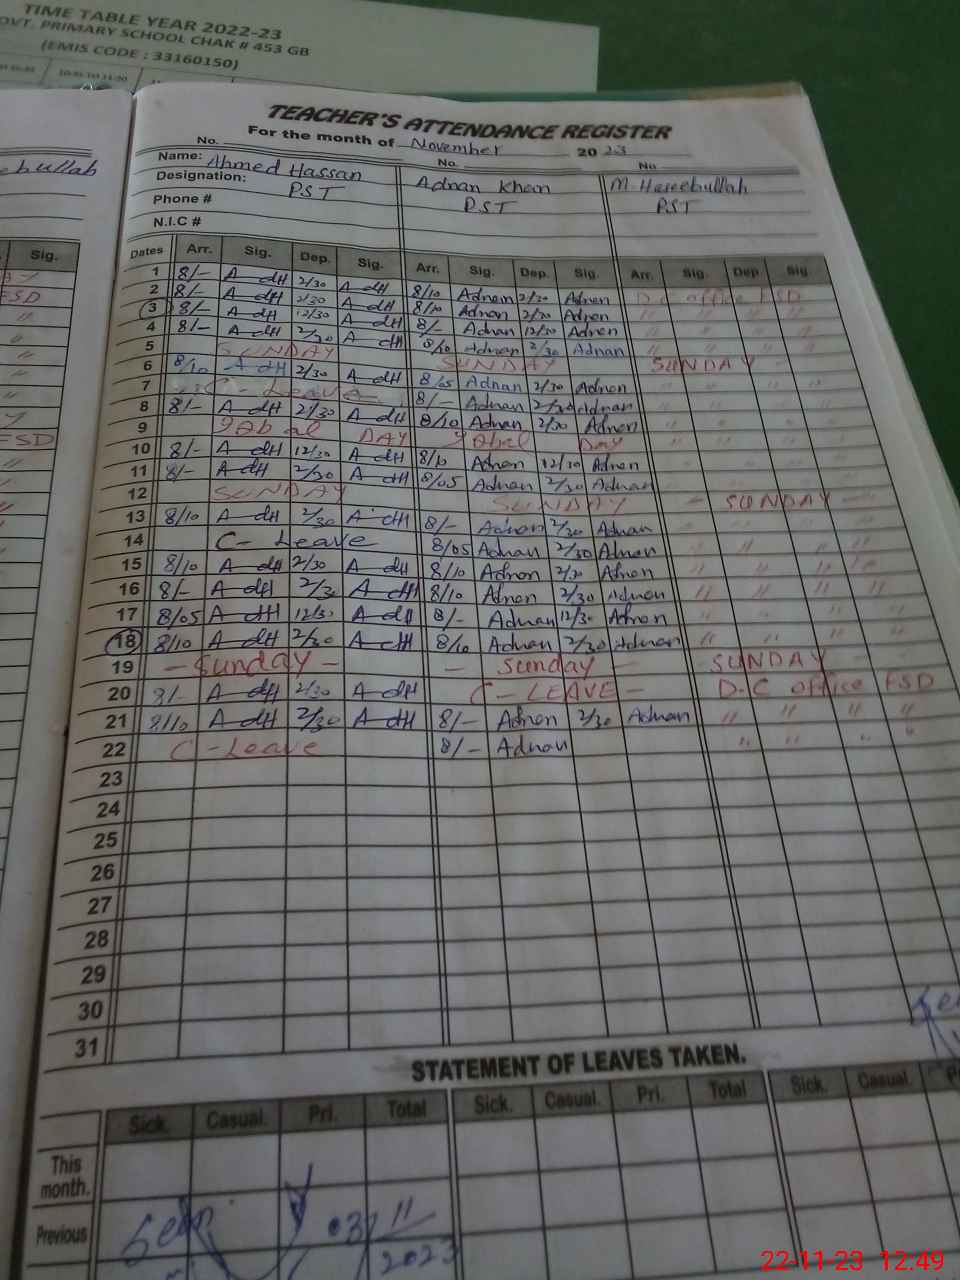 TIME TABLE YEAR 2022-23
OVT. PRIMARY SCHOOL CHAK # 453 GB
(EMIS CODE : 33160150)
TEACHER'S ATTENDANCE REGISTER
For the month of November 2023
No. No. No
Name: Ahmed Hassan Adnan Khan M. Haseebullah
Designation: PST PST PST
Phone #
N.I.C #
Sig. Dates Arr. Sig. Dep. Sig. Arr. Sig. Dep. Sig. Arr. Sig. Dep Sig
1 8/- A dH 2/30 A dH 8/10 Adnan 2/30 Adnan D.C office FSD
2 8/- A dH 2/30 A dH 8/10 Adnan 2/30 Adnan " " " "
3 8/- A dH 12/30 A dH 8/- Adnan 12/30 Adnan " " " "
4 8/- A dH 2/30 A dH 8/10 Adnan 2/30 Adnan " " " "
5 SUNDAY SUNDAY SUNDAY
6 8/10 A dH 2/30 A dH 8/05 Adnan 2/30 Adnan " " " "
7 C - Leave 8/- Adnan 2/30 Adnan " " " "
8 8/- A dH 2/30 A dH 8/10 Adnan 2/30 Adnan " " " "
9 Iqbal DAY Iqbal Day " " " "
10 8/- A dH 12/30 A dH 8/10 Adnan 12/30 Adnan " " " "
11 8/- A dH 2/30 A dH 8/05 Adnan 2/30 Adnan " " " "
12 SUNDAY SUNDAY - SUNDAY -
13 8/10 A dH 2/30 A dH 8/- Adnan 2/30 Adnan " " " "
14 C - Leave 8/05 Adnan 2/30 Adnan " " " "
15 8/10 A dH 2/30 A dH 8/10 Adnan 2/30 Adnan " " " "
16 8/- A dH 2/30 A dH 8/10 Adnan 2/30 Adnan " " " "
17 8/05 A dH 12/30 A dH 8/- Adnan 12/30 Adnan " " " "
18 8/10 A dH 2/30 A dH 8/10 Adnan 2/30 Adnan " " " "
19 - Sunday - - Sunday - SUNDAY -
20 8/- A dH 2/30 A dH C - LEAVE - D.C office FSD
21 8/10 A dH 2/30 A dH 8/- Adnan 2/30 Adnan " " " "
22 C - Leave 8/- Adnan " " " "
23
24
25
26
27
28
29
30
31
STATEMENT OF LEAVES TAKEN.
Sick. Casual. Pri. Total Sick. Casual. Pri. Total Sick. Casual.
This month.
Previous
Seen 03/11/2023
22-11-23 12.49